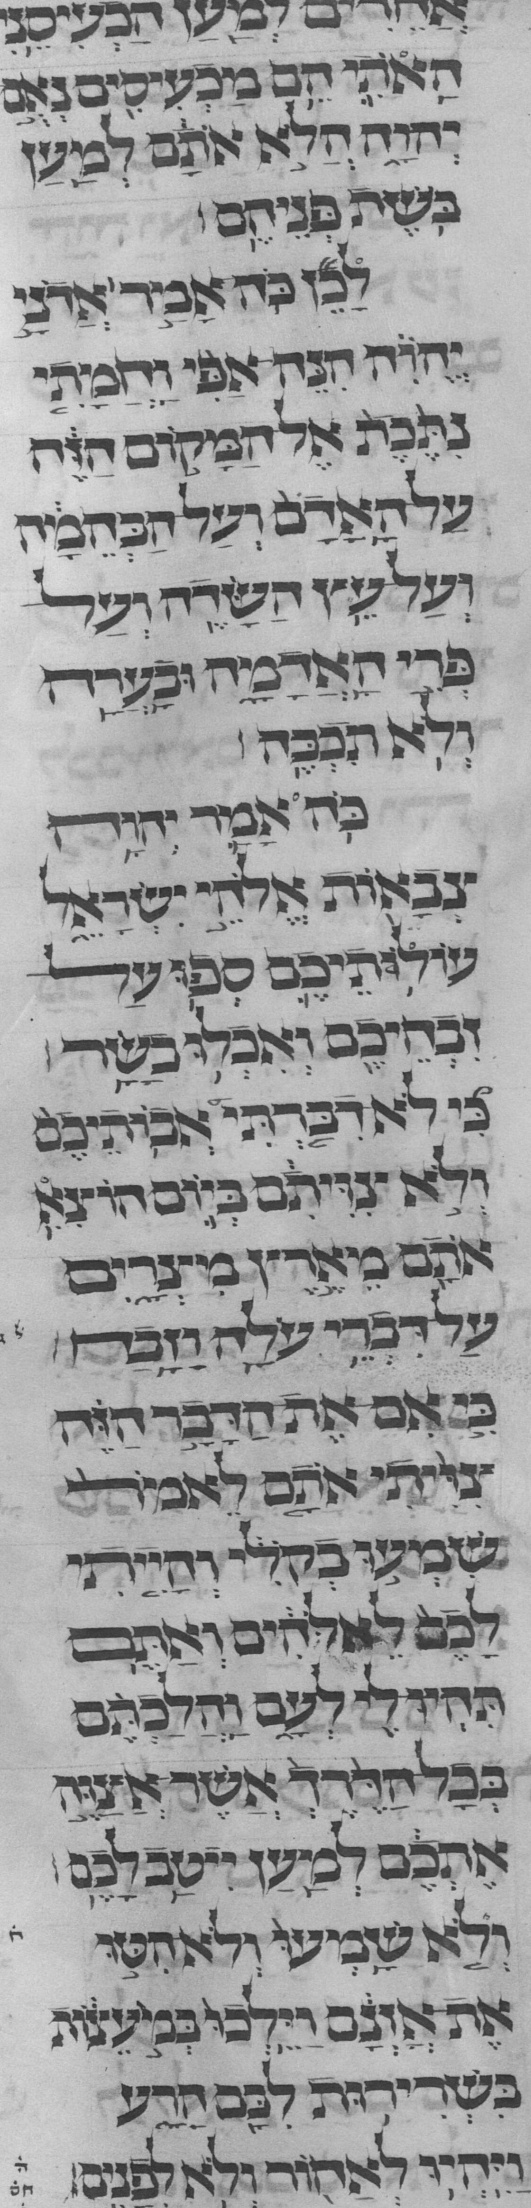 אֲחֵרִים לְמַעַן הַכְעִיסֵנִי
הַאֹתִי הֵם מַכְעִסִים נְאֻם
יְהוָה הֲלֹא אֹתָם לְמַעַן
בֹּשֶׁת פְּנֵיהֶם׃
לָכֵן כֹּה אָמַר אֲדֹנָי
יֱהוִה הִנֵּה אַפִּי וַחֲמָתִי
נִתֶּכֶת אֶל הַמָּקוֹם הַזֶּה
עַל הָאָדָם וְעַל הַבְּהֵמָה
וְעַל עֵץ הַשָּׂדֶה וְעַל
פְּרִי הָאֲדָמָה וּבָעֲרָה
וְלֹא תִכְבֶּה׃
כֹּה אָמַר יְהוָה
צְבָאוֹת אֱלֹהֵי יִשְׂרָאֵל
עוֹלוֹתֵיכֶם סְפוּ עַל
זִבְחֵיכֶם וְאִכְלוּ בָשָׂר׃
כִּי לֹא דִבַּרְתִּי אֲבוֹתֵיכֶם
וְלֹא צִוִּיתִם בְּיוֹם הוֹצִא
אֹתָם מֵאֶרֶץ מִצְרָיִם
עַל דִּבְרֵי עֹלָה וָזָבַח׃
כִּי אִם אֶת הַדָּבָר הַזֶּה
צִוִּיתִי אֹתָם לֵאמֹר
שִׁמְעוּ בְקֹלִי וְהָיִיתִי
לָכֶם לֵאלֹהִים וְאַתֶּם
תִּהְיוּ לִי לְעָם וַהֲלַכְתֶּם
בְּכָל הַדֶּרֶךְ אֲשֶׁר אֲצַוֶּה
אֶתְכֶם לְמַעַן יִיטַב לָכֶם׃
וְלֹא שָׁמְעוּ וְלֹא הִטּוּ
אֶת אָזְנָם וַיֵּלְכוּ בְּמֹעֵצוֹת
בִּשְׁרִירוּת לִבָּם הָרָע
וַיִּהְיוּ לְאָחוֹר וְלֹא לְפָנִים׃